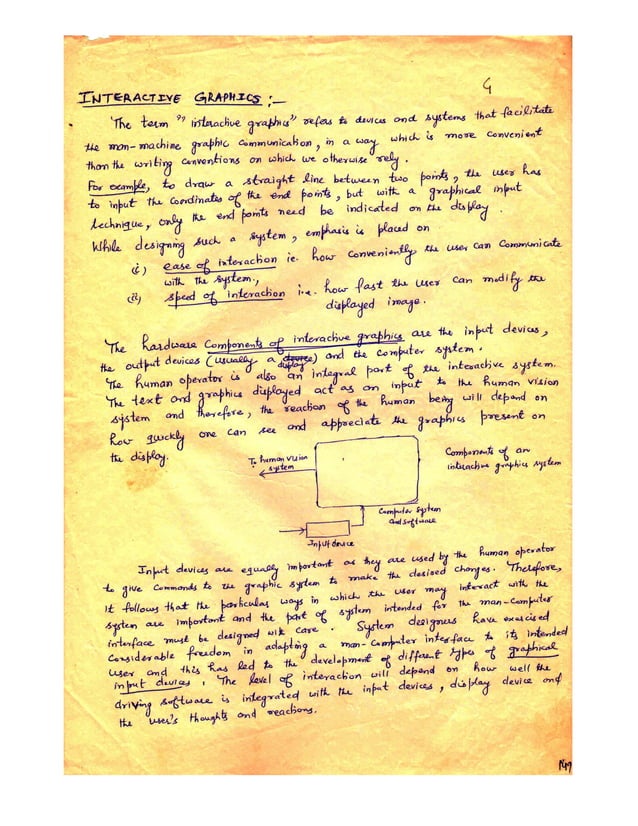 4
INTERACTIVE GRAPHICS :-
The term "interactive graphics" refers to devices and systems that facilitate
the man-machine graphic communication, in a way which is more convenient
than the writing conventions on which we otherwise rely.
For example, to draw a straight line between two points, the user has
to input the coordinates of the end points, but with a graphical input
technique, only the end points need be indicated on the display.
While designing such a system, emphasis is placed on
(i) ease of interaction ie. how conveniently the user can communicate
with the system,
(ii) speed of interaction i.e. how fast the user can modify the
displayed image.
The hardware components of interactive graphics are the input devices,
the output devices (usually a display) and the computer system.
The human operator is also an integral part of the interactive system.
The text and graphics displayed act as an input to the human vision
system and therefore, the reaction of the human being will depend on
how quickly one can see and appreciate the graphics present on
the display.
To human vision
system
Components of an
interactive graphics system
Computer system
and software
Input device
Input devices are equally important as they are used by the human operator
to give commands to the graphic system to make the desired changes. Therefore,
it follows that the particular ways in which the user may interact with the
system are important and the part of system intended for the man-computer
interface must be designed with care. System designers have exercised
considerable freedom in adapting a man-computer interface to its intended
user and this has led to the development of different types of graphical
input devices. The level of interaction will depend on how well the
driving software is integrated with the input devices, display device and
the user's thoughts and reactions.